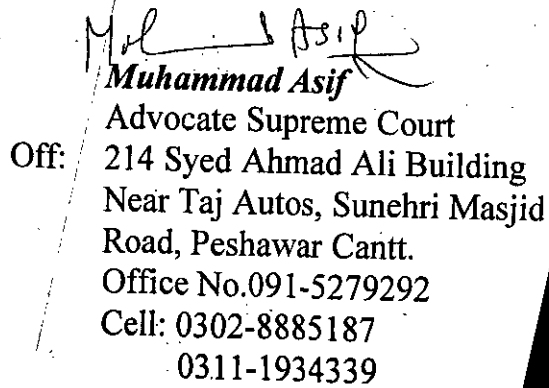 Mohd Asif
Muhammad Asif
Advocate Supreme Court
Off: 214 Syed Ahmad Ali Building
Near Taj Autos, Sunehri Masjid
Road, Peshawar Cantt.
Office No.091-5279292
Cell: 0302-8885187
0311-1934339